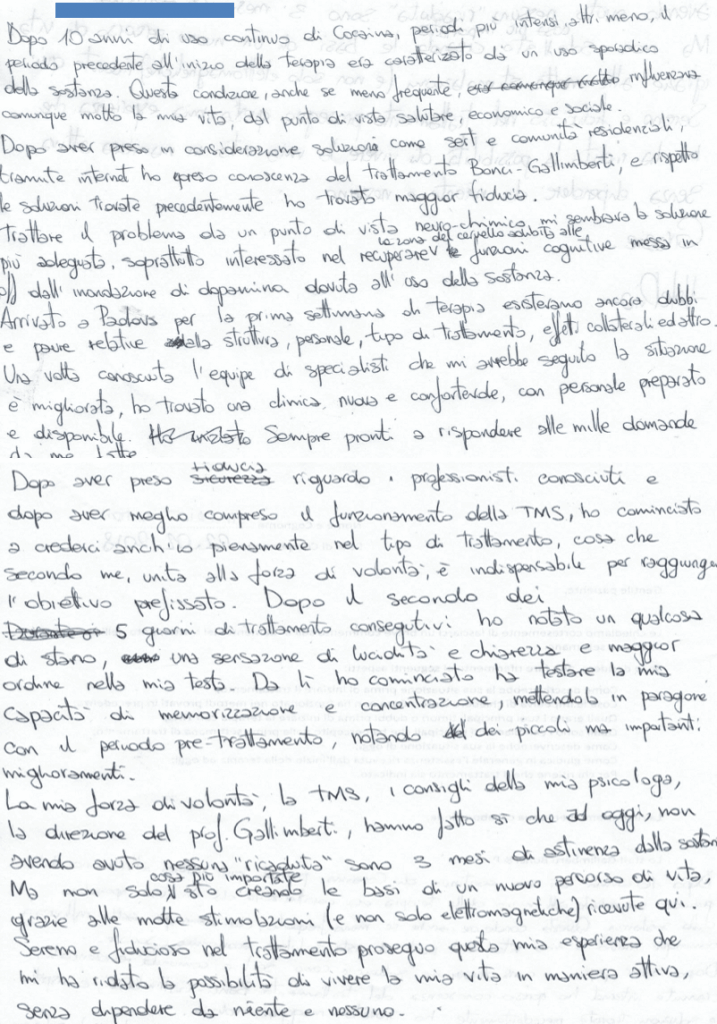 Dopo 10 anni di uso continuo di Cocaina, periodi più intensi, altri meno, il
periodo precedente all'inizio della terapia era caratterizato da un uso sporadico
della sostanza. Questa condizione, anche se meno frequente, influenzava
comunque molto la mia vita, dal punto di vista salutare, economico e sociale.
Dopo aver preso in considerazione soluzioni come sert e comunità residenziali,
tramite internet ho preso conoscenza del trattamento Bonci-Gallimberti, e rispetto
le soluzioni trovate precedentemente ho trovato maggior fiducia.
Trattare il problema da un punto di vista neuro-chimico mi sembrava la soluzione
più adeguata, soprattutto interessato nel recuperare le zone del cervello adibite alle funzioni cognitive messa in
off dall'inondazione di dopamina dovuta all'uso della sostanza.
Arrivato a Padova per la prima settimana di terapia esistevano ancora dubbi
e paure relative alla struttura, personale, tipo di trattamento, effetti collaterali ed altro.
Una volta conosciuta l'equipe di specialisti che mi avrebbe seguito la situazione
è migliorata, ho trovato una clinica nuova e confortevole, con personale preparato
e disponibile. Sempre pronti a rispondere alle mille domande
da me fatte
Dopo aver preso fiducia riguardo i professionisti conosciuti e
dopo aver meglio compreso il funzionamento della TMS, ho cominciato
a crederci anch'io pienamente nel tipo di trattamento, cosa che
secondo me, unita alla forza di volontà, è indispensabile per raggiungere
l'obiettivo prefissato. Dopo il secondo dei
5 giorni di trattamento consegutivi ho notato un qualcosa
di strano, una sensazione di lucidità e chiarezza e maggior
ordine nella mia testa. Da lì ho cominciato ha testare la mia
capacità di memorizzazione e concentrazione, mettendola in paragone
con il periodo pre-trattamento, notando dei piccoli ma importanti
miglioramenti.
La mia forza di volontà, la TMS, i consigli della mia psicologa,
la direzione del prof. Gallimberti, hanno fatto si che ad oggi, non
avendo avuto nessuna "ricaduta" sono 3 mesi di astinenza dalla sostanza
Ma non solo, cosa più importate sto creando le basi di un nuovo percorso di vita,
grazie alle molte stimolazioni (e non solo elettromagnetiche) ricevute qui.
Sereno e fiducioso nel trattamento proseguo questa mia esperienza che
mi ha ridato la possibilità di vivere la mia vita in maniera attiva,
senza dipendere da niente e nessuno.